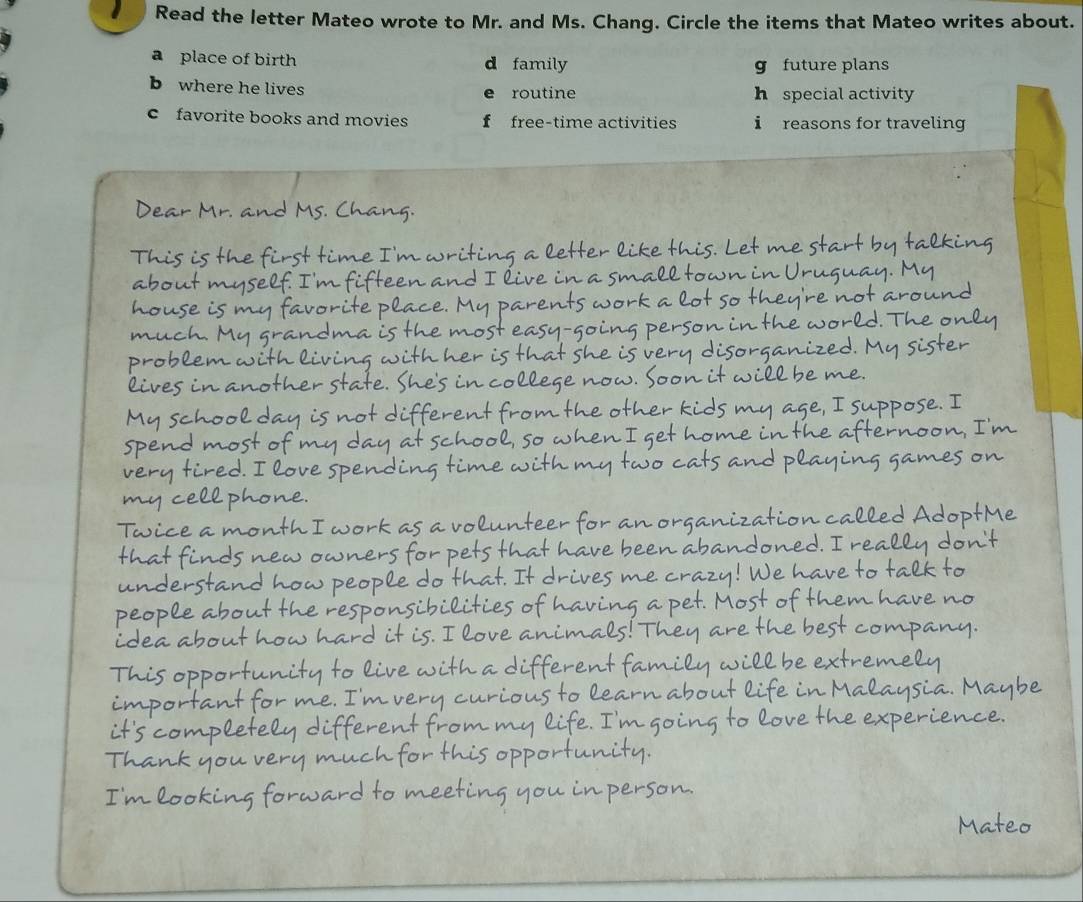 1 Read the letter Mateo wrote to Mr. and Ms. Chang. Circle the items that Mateo writes about.
a place of birth
b where he lives
c favorite books and movies
d family
e routine
f free-time activities
g future plans
h special activity
i reasons for traveling
Dear Mr. and Ms. Chang.
This is the first time I'm writing a letter like this. Let me start by talking
about myself. I'm fifteen and I live in a small town in Uruguay. My
house is my favorite place. My parents work a lot so they're not around
much. My grandma is the most easy-going person in the world. The only
problem with living with her is that she is very disorganized. My sister
lives in another state. She's in college now. Soon it will be me.
My school day is not different from the other kids my age, I suppose. I
spend most of my day at school, so when I get home in the afternoon, I'm
very tired. I love spending time with my two cats and playing games on
my cell phone.
Twice a month I work as a volunteer for an organization called AdoptMe
that finds new owners for pets that have been abandoned. I really don't
understand how people do that. It drives me crazy! We have to talk to
people about the responsibilities of having a pet. Most of them have no
idea about how hard it is. I love animals! They are the best company.
This opportunity to live with a different family will be extremely
important for me. I'm very curious to learn about life in Malaysia. Maybe
it's completely different from my life. I'm going to love the experience.
Thank you very much for this opportunity.
I'm looking forward to meeting you in person.
Mateo